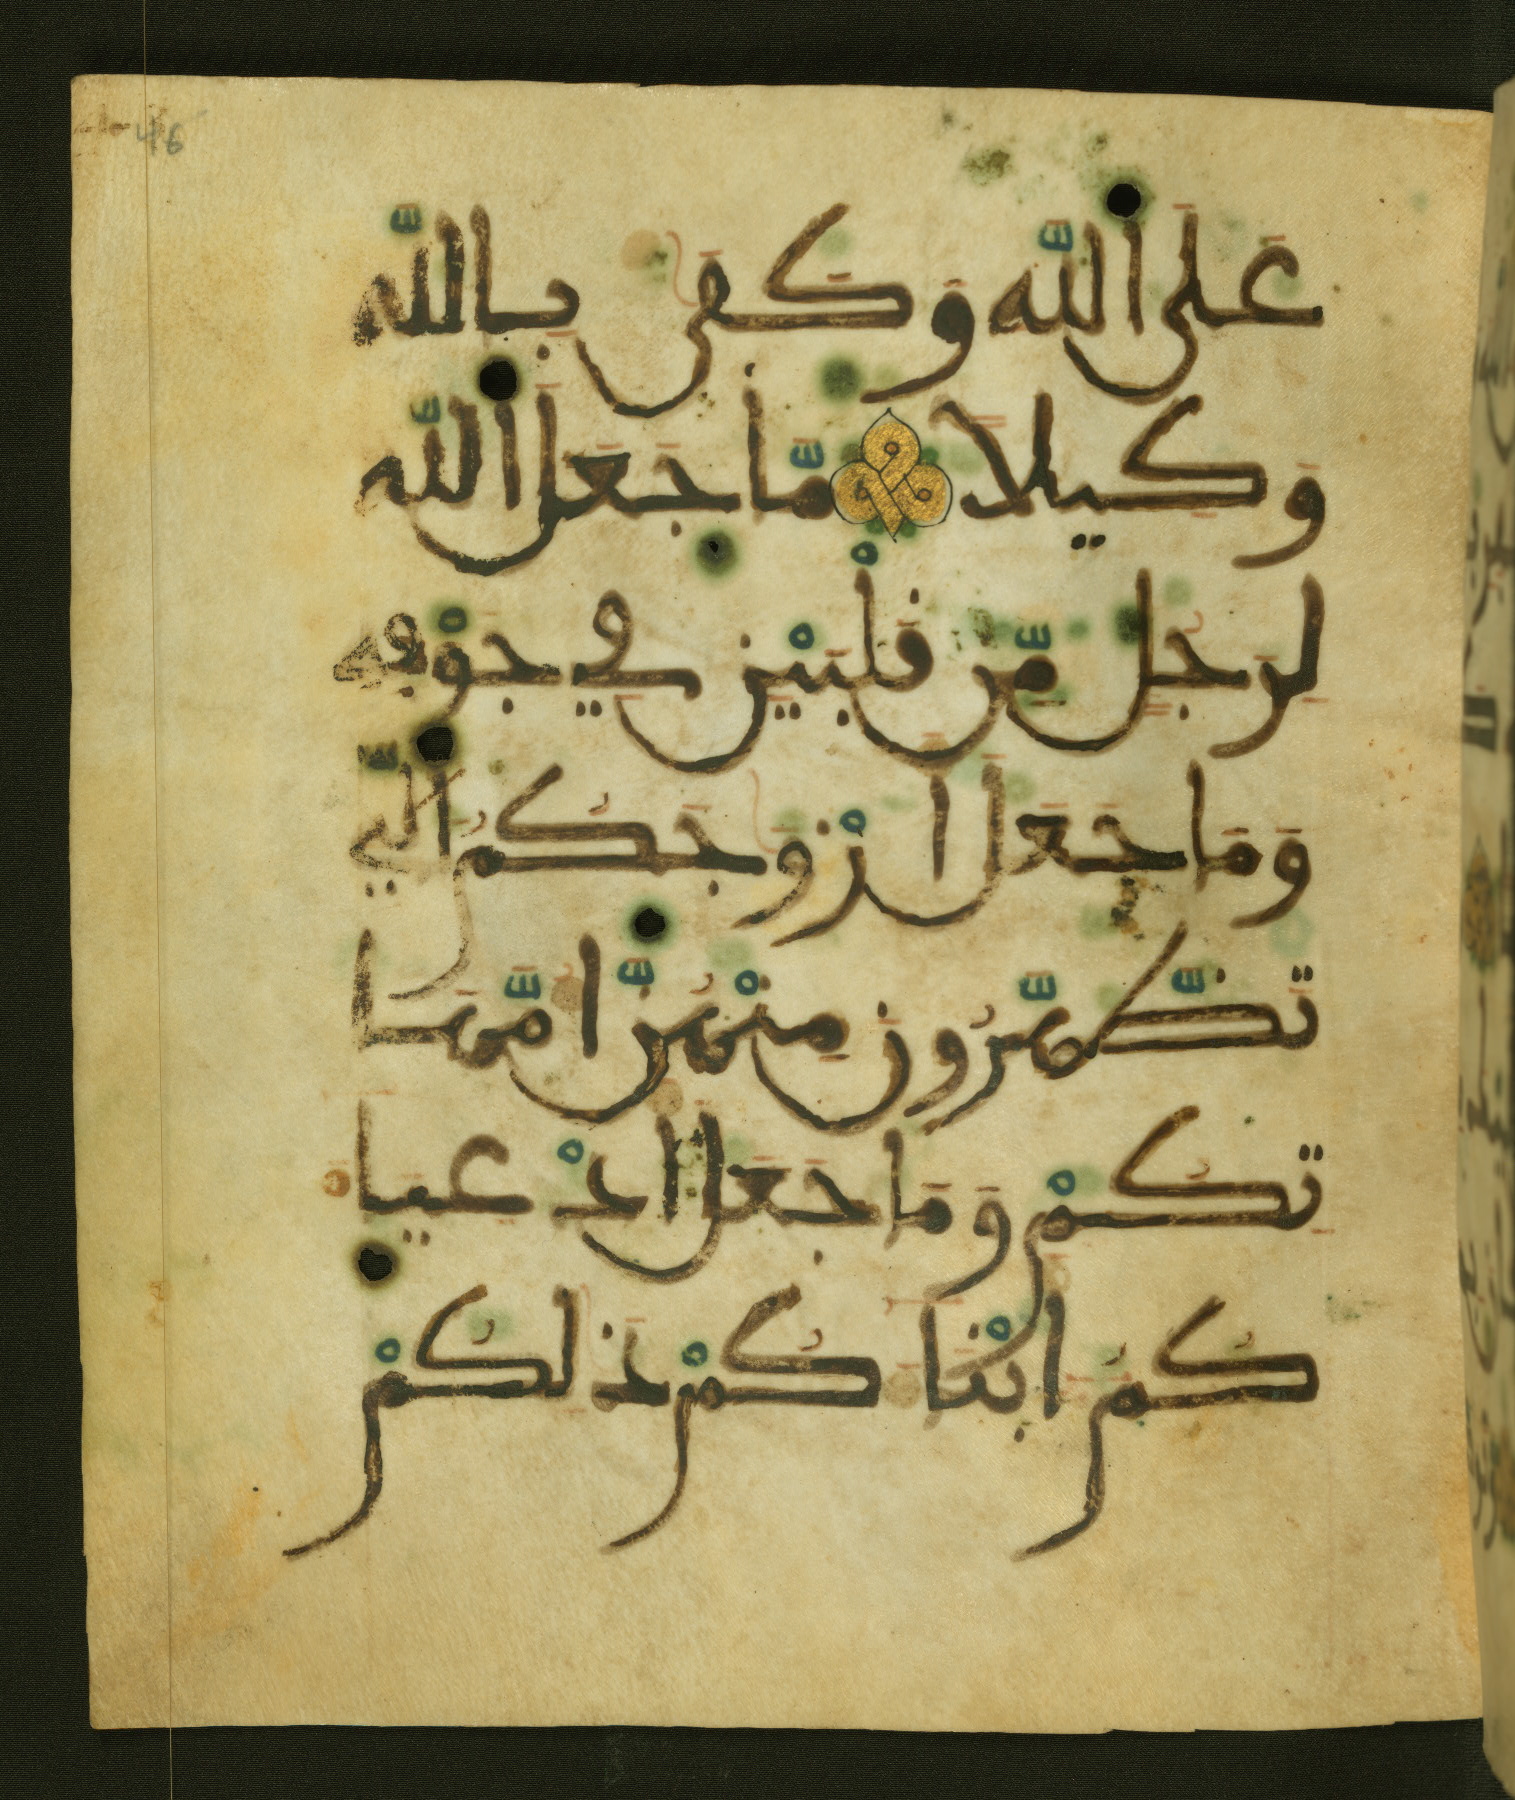 46
عَلَى اللَّهِ وَكَفَى بِاللَّهِ
وَكِيلًا مَّا جَعَلَ اللَّهُ
لِرَجُلٍ مِّن قَلْبَيْنِ فِي جَوْفِهِ
وَمَا جَعَلَ ازْوَجَكُمُ الَّي
تَظَّهَّرُونَ مِنْهُنَّ امَّهَا
تِكُمْ وَمَا جَعَلَ ادْعِيَا
كُمُ ابْنَا كُمْ ذَلِكُمْ